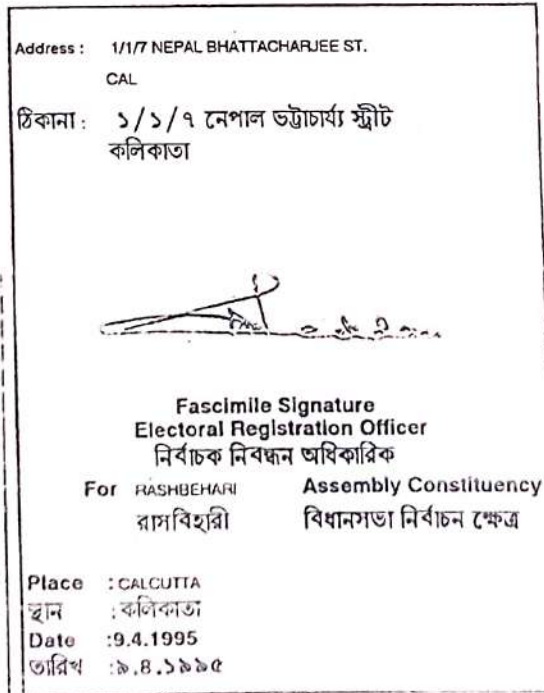 Address : 1/1/7 NEPAL BHATTACHARJEE ST.
CAL
ঠিকানা : ১/১/৭ নেপাল ভট্টাচার্য্য স্ট্রীট
কলিকাতা
Fascimile Signature
Electoral Registration Officer
নির্বাচক নিবন্ধন অধিকারিক
For RASHBEHARI Assembly Constituency
রাসবিহারী বিধানসভা নির্বাচন ক্ষেত্র
Place : CALCUTTA
স্থান : কলিকাতা
Date :9.4.1995
তারিখ :৯.৪.১৯৯৫